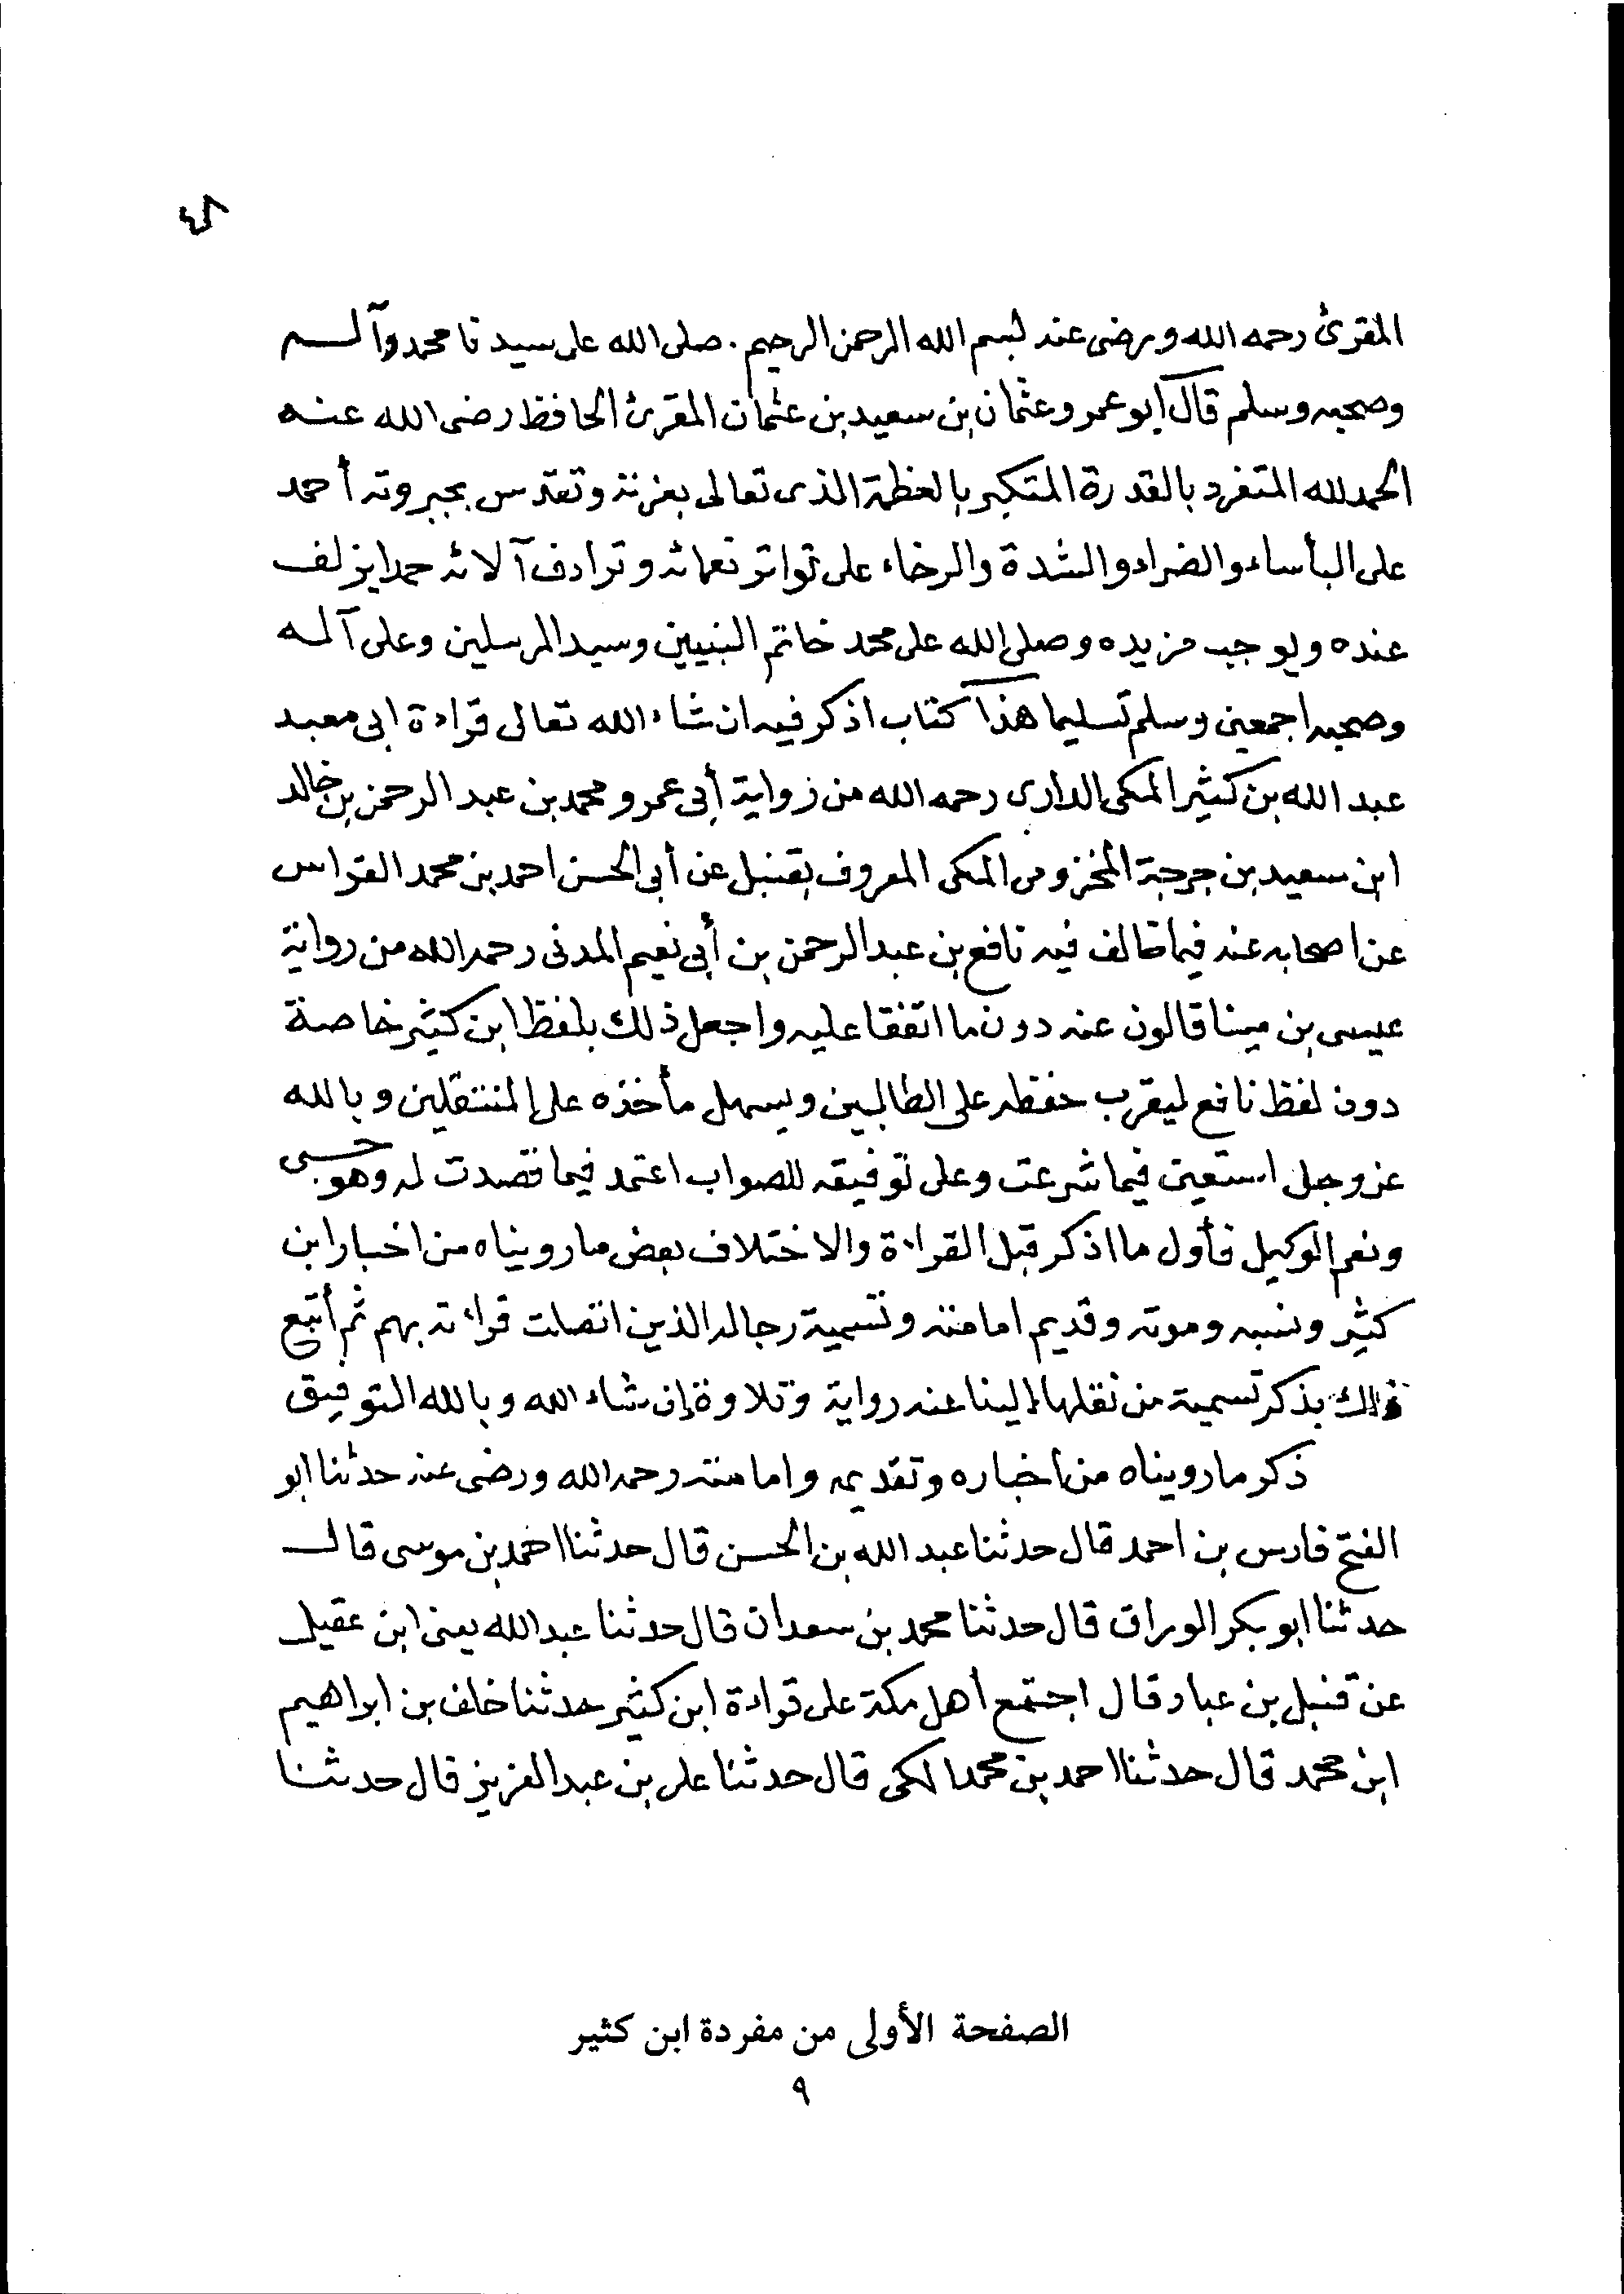 المقرئ رحمه الله ورضى عنه بسم الله الرحمن الرحيم . صلى الله على سيدنا محمد وآله
وصحبه وسلم قال أبو عمرو عثمان بن سعيد بن عثمان المقرئ الحافظ رضى الله عنه
الحمد لله المتفرد بالقدرة المتكبر بالعظمة الذى تعالى بعزته وتقدس بجبروته أحمد
على البأساء والضراء والشدة والرخاء على تواتر نعمائه وترادف آلائه حمدا يزلف
عنده ويوجب مزيده وصلى الله على محمد خاتم النبيين وسيد المرسلين وعلى آله
وصحبه اجمعين وسلم تسليما هذا كتاب اذكر فيه ان شاء الله تعالى قراءة ابى معبد
عبد الله بن كثير المكى الدارى رحمه الله من رواية أبى عمرو محمد بن عبد الرحمن بن خالد
ابن سعيد بن جرجة المخزومى المكى المعروف بقنبل عن أبى الحسن احمد بن محمد القواس
عن اصحابه عنه فيما خالف فيه نافع بن عبد الرحمن بن أبى نعيم المدنى رحمه الله من رواية
عيسى بن مينا قالون عنه دون ما اتفقا عليه واجعل ذلك بلفظ ابن كثير خاصة
دون لفظ نافع ليقرب حفظه على الطالبين ويسهل مأخذه على المنتقلين وبالله
عز وجل استعين فيما شرعت وعلى توفيقه للصواب اعتمد فيما قصدت له وهو حسبى
ونعم الوكيل فأول ما اذكر قبل القراءة والاختلاف بعض ما رويناه من اخبار ابن
كثير ونسبه وموته وقديم امامته وتسمية رجاله الذين اتصلت قراءته بهم ثم أتبع
ذلك بذكر تسمية من نقلها إلينا عنه رواية وتلاوة إن شاء الله وبالله التوفيق
ذكر ما رويناه من اخباره وتقديمه وامامته رحمه الله ورضى عنه حدثنا ابو
الفتح فارس بن احمد قال حدثنا عبد الله بن الحسن قال حدثنا احمد بن موسى قال
حدثنا ابو بكر الوراق قال حدثنا محمد بن سعدان قال حدثنا عبد الله يعنى ابن عقيل
عن قنبل بن عباد قال اجتمع أهل مكة على قراءة ابن كثير حدثنا خلف بن ابراهيم
ابن محمد قال حدثنا احمد بن محمد المكى قال حدثنا على بن عبد العزيز قال حدثنا
الصفحة الأولى من مفردة ابن كثير
٩